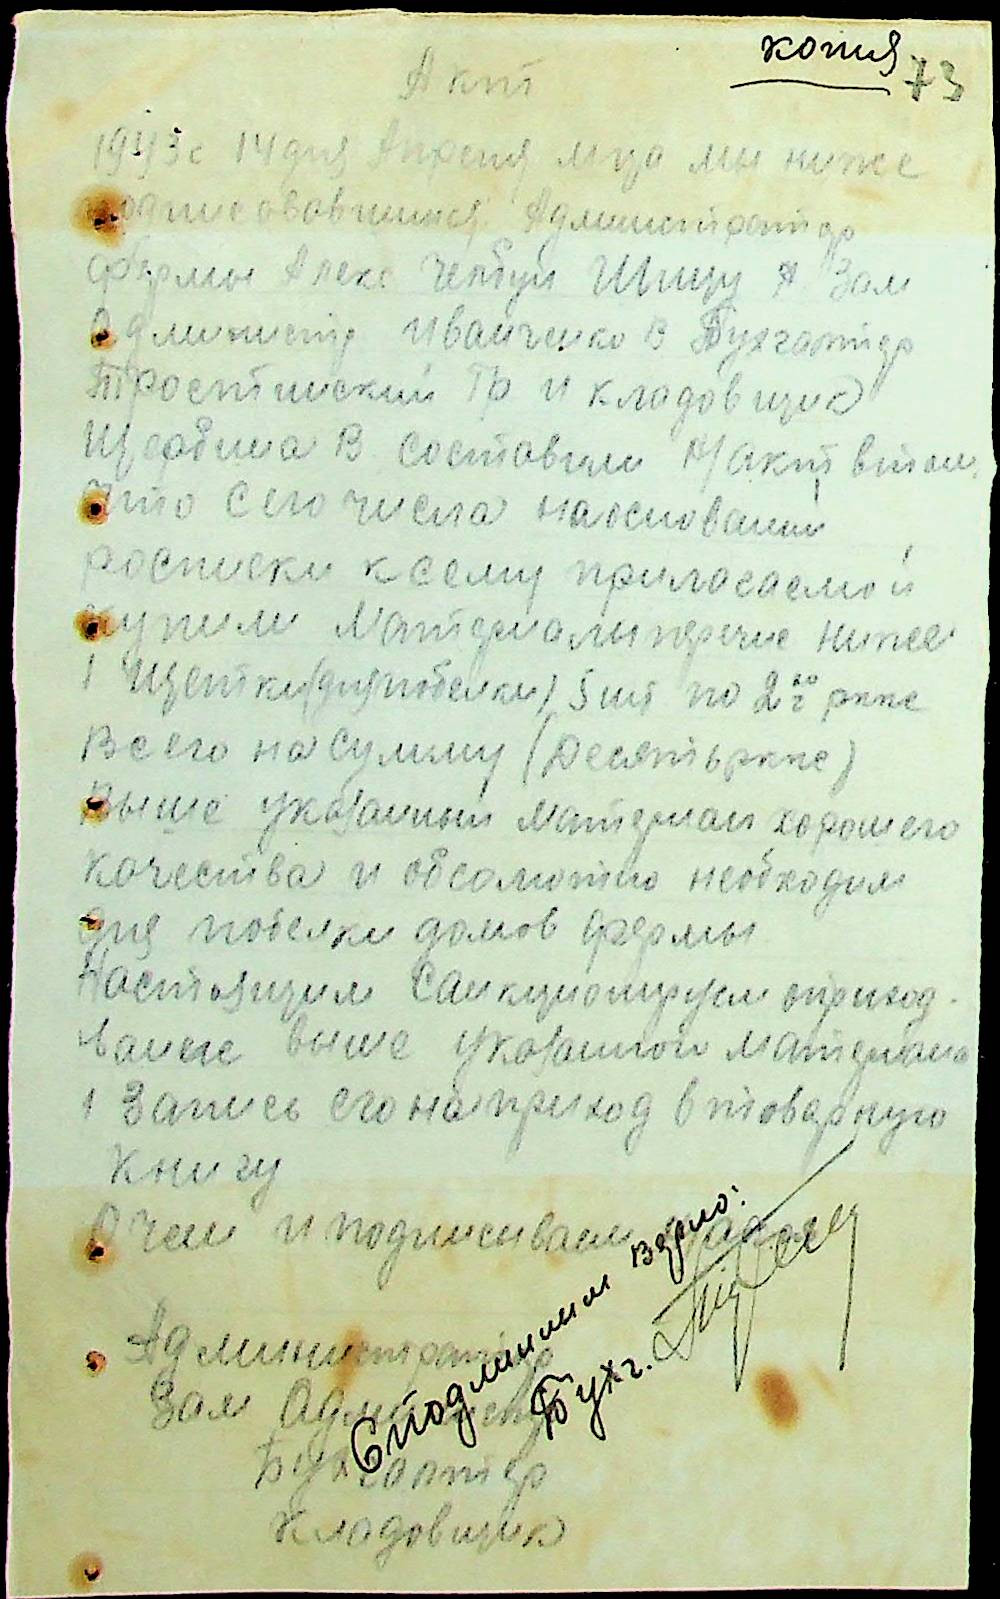 копия
73
Акт
1943г 14 дня Апреля м-ца мы ниже
подписовавшиися Администратор
фермы Алекс Чербул Шицу А Зам
Админстр Иванченко В Бухгалтер
Тростинский Гр и кладовщик
Щербина В составили н/акт втом
что сего числа на основании
росписки к сему прилагаемой
купили материалы переч ниже
1 Щетки (для побелки) 5 шт по 2 ркке
Всего на сумму (Десять ркке)
Выше указанный материал хорошего
качества и обсолютно необходим
для побелки домов фермы
Настоящим Санкционируем оприход
вание выше указанного материала
и Запись его на приход в товарную
книгу
О чем и подписываем
С подлинным верно:
Бухг.
Администратор
Зам Админстр
Бухгалтер
Кладовщик